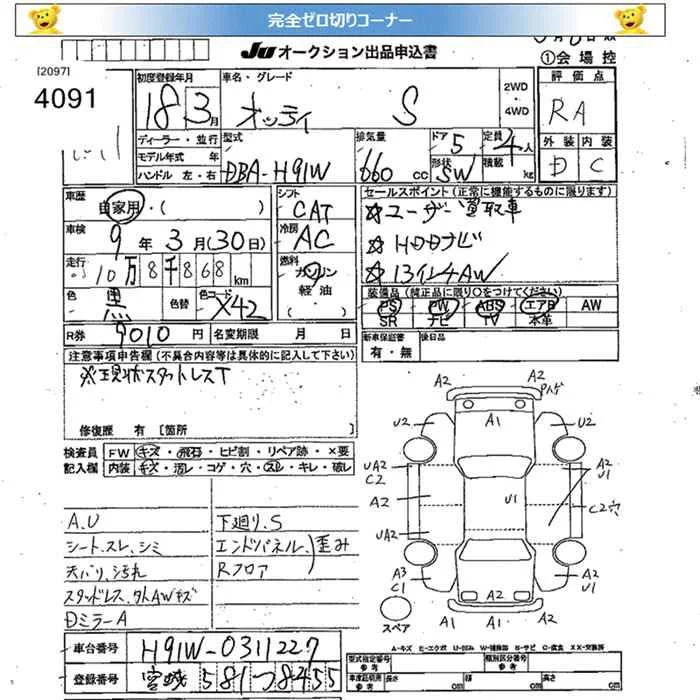 完全ゼロ切りコーナー
JU オークション出品申込書
①会場控
[2097]
4091
初度登録年月
18 3月
車名・グレード
オッティ S
2WD
4WD
評価点
RA
外装 内装
D C
ディーラー・並行
モデル年式 年
ハンドル 左・右
型式
DBA-H91W
排気量
660 cc
ドア 5
形状 SW
定員 4人
積載 kg
車歴
自家用・( )
シフト
CAT
セールスポイント(正常に機能するものに限ります)
☆ユーザー買取車
☆HDDナビ
☆13インチAW
車検
9年3月(30日)
冷房
AC
走行
10万8千868km
燃料
ガソリン
軽油
( )
色
黒
色替
色コード
X42
装備品(純正品に限り○をつけてください)
PS PW ABS エアB AW
SR ナビ TV 本革
R券 9010円
名変期限 月 日
新車保証書
有・無
後日品
注意事項申告欄(不具合内容等は具体的に記入して下さい)
※現状スタットレスT
修復歴 有 [箇所 ]
検査員
記入欄
FW キズ・飛石・ヒビ割・リペア跡・×要
内装 キズ・汚レ・コゲ・穴・スレ・キレ・破し
A.U
シート、スレ、シミ
天バリ、汚れ
スタッドレス、外AWキズ
Dミラー A
下廻り、S
エンドパネル、歪み
Rフロア
A2
A2
パハゲ
U2
A1
U2
UA2
C2
A2
U1
A2
U1
C2穴
UA2
A3
C1
A2
A2
U1
A2
A2
スペア
A-キズ E-エクボ U-凹み W-補修跡 S-サビ C-腐食 XX-交換済
車台番号
H91W-0311227
登録番号
宮城 581つ8455
型式指定番号
参考
類別区分番号
参考
車庫証明用
参考
長さ cm
幅 cm
高さ cm